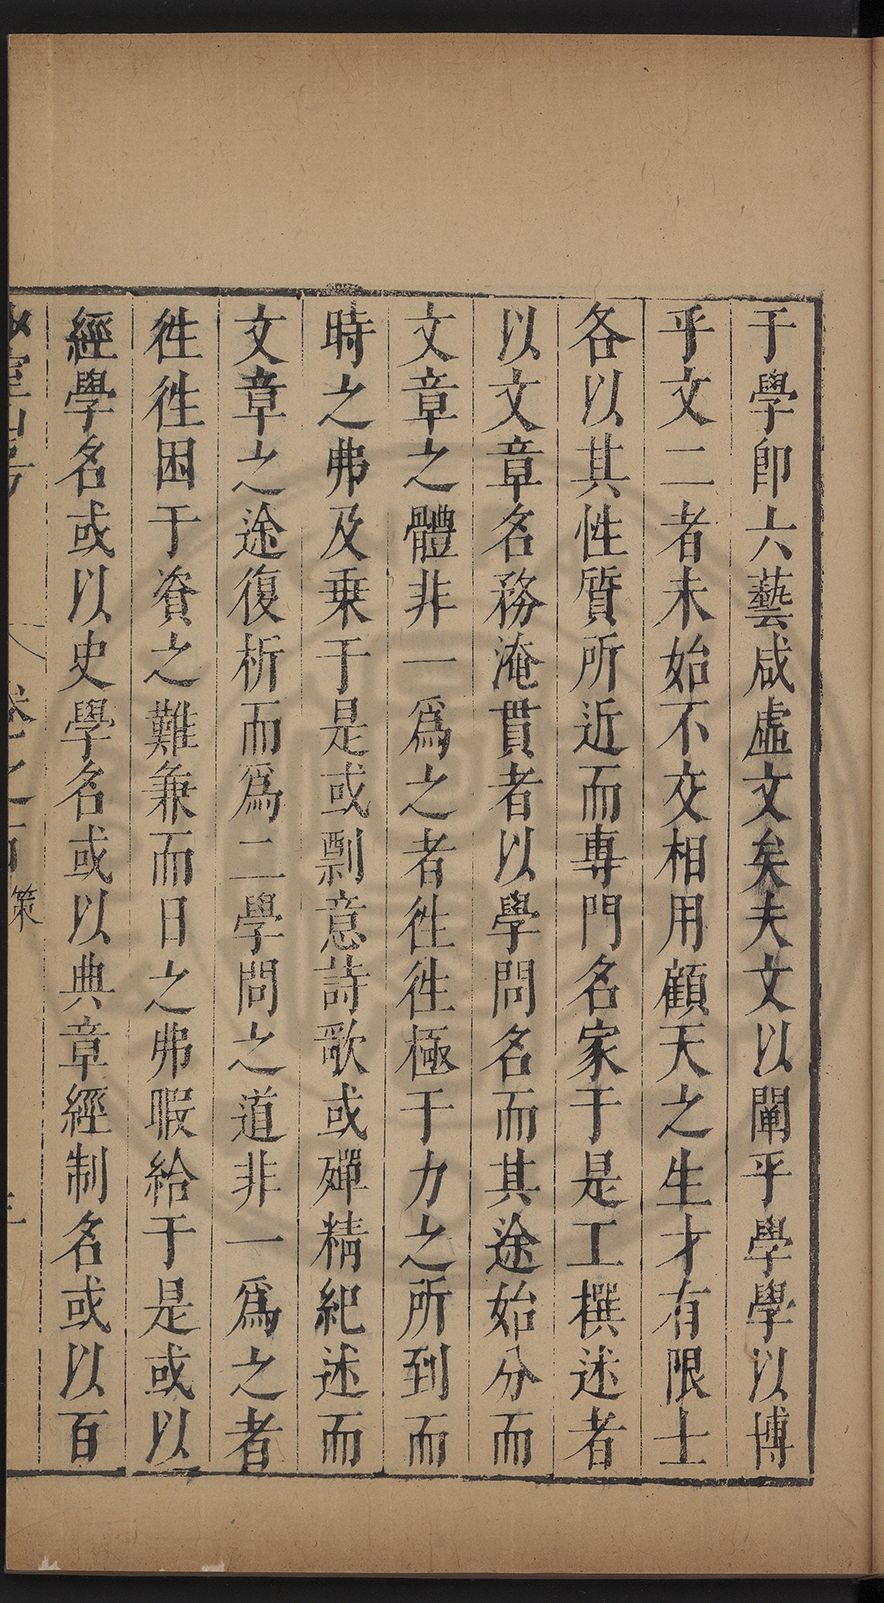 于學即六藝咸虛文矣夫文以闡乎學學以博
乎文二者未始不交相用顧天之生才有限士
各以其性質所近而專門名家于是工撰述者
以文章名務淹貫者以學問名而其途始分而
文章之體非一爲之者徃徃極于力之所到而
時之弗及乗于是或剽意詩歌或殫精紀述而
文章之途復析而爲二學問之道非一爲之者
徃徃困于資之難兼而日之弗暇給于是或以
經學名或以史學名或以典章經制名或以百
卷之百 策